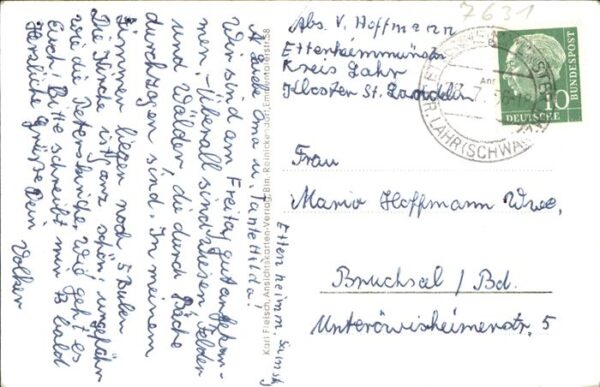 Ettenheimmünst
Liebe Oma u. Tante Hilda!
Wir sind am Freitag gut angekom-
men. Überall sind Wiesen, Felder
und Wälder, die durch Bäche
durchzogen sind. In meinem
Zimmer liegen noch 5 Buben
Die Kirche ist ganz schön, ungefähr
wie die Peterskirche. Wie geht es
Euch? Bitte schreibt mir bald
Herzliche Grüße Dein
Volker
Karl Fleisch, Ansichtskarten-Verlag, Bln. Reinickendorf, Emmentalerstr. 58
7631
Abs. V. Hoffmann
Ettenheimmünster
Kreis Lahr
Kloster St. Landelin
LAHR (SCHWARZW
10
DEUTSCHE
BUNDESPOST
Frau
Maria Hoffmann Wwe,
Bruchsal / Bd.
Unteröwisheimerstr. 5